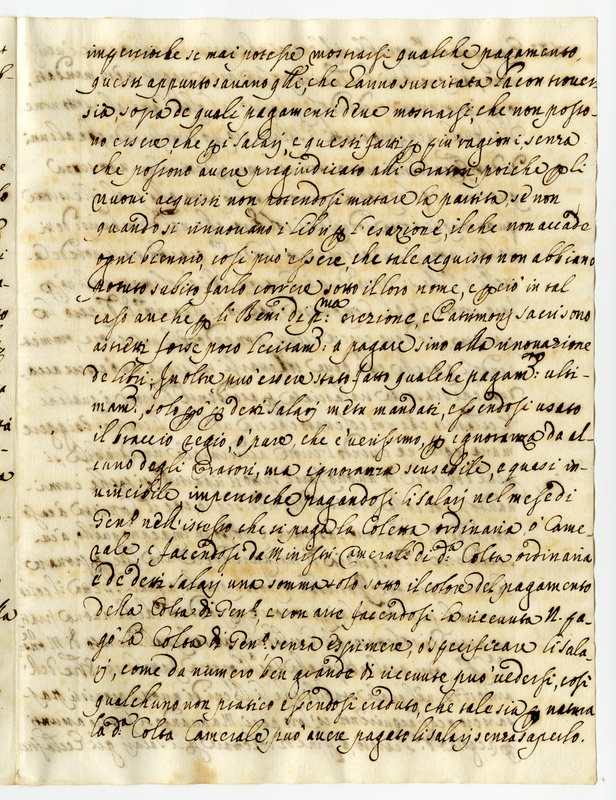 imperciocche se mai potesse mostrarsi qualche pagamento,
questi appunto saranno gli, che hanno suscitata la controver-
sia, sopra de quali pagamenti deve mostrarsi, che non posso-
no essere che p i salarj, e questi fatti p più ragioni senza
che possono avere pregiudicato alli Oratori, poiche p li
nuovi acquisti non potendosi mutare la partita se non
quando si rinuovano i libri p l'esazione, il che non accade
ogni biennio, così può essere, che tale acquisto non abbiano
potuto subito farlo correre sotto il loro nome, e p ciò in tal
caso anche p li Beni di p.ma erezione, e Patrimonj sacri sono
astretti forse poco lecitam.: a pagare sino alla rinovazione
de libri; Inoltre può essere stato fatto qualche pagam.to: ulti-
mam., solo p ò p detti salarj mandati, essendosi usato
il braccio regio, ò pare, che è verissimo, p ignoranza da al-
cuno degli Oratori, ma ignoranza scusabile, e quasi in-
vincibile imperciòche pagandosi li salarj nel mese di
Gen.o nell'istesso che si paga la Coletta ordinaria ò Came-
rale e facendosi da Ministri Camerali di d.a Colta ordinaria
e de detti salarj una somma solo sotto il colore del pagamento
della Colta di Gen.o, e con arte facendosi la ricevuta N. pa-
gò la Colta di Gen.o senza esprimere, ò specificare li sala-
rj, come da numero ben grande di ricevute può vedersi, così
qualchuno non pratico essendosi creduto, che tale sia p natura
la d.a Colta Camerale può avere pagato li salarj senza saperlo.